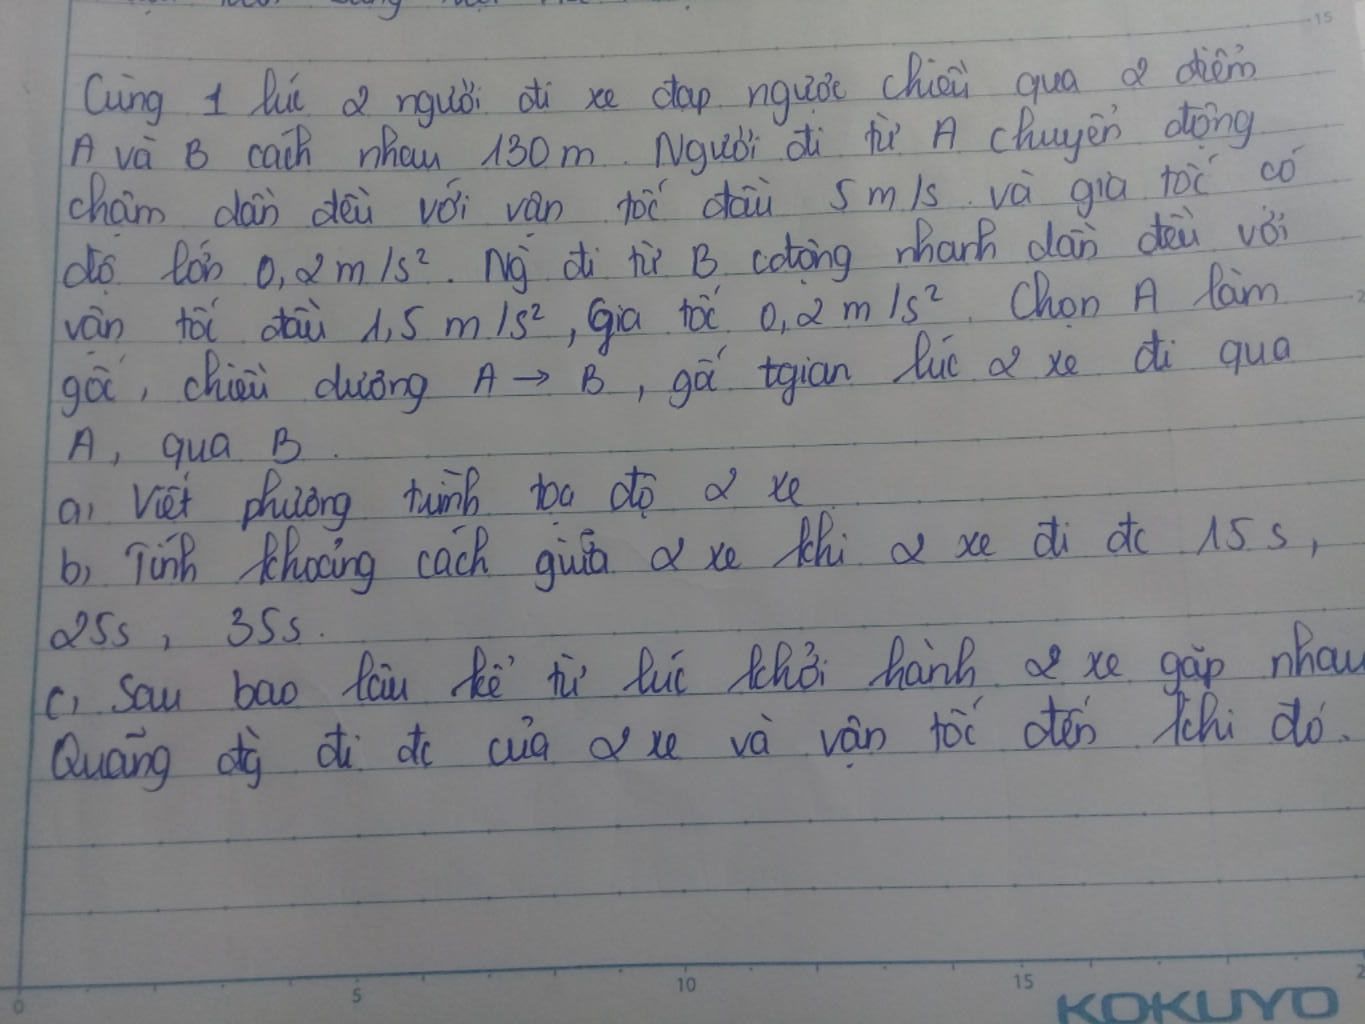 15
Cùng 1 lúc 2 người đi xe đạp ngược chiều qua 2 điểm
A và B cách nhau 130m. Người đi từ A chuyển động
chậm dần đều với vận tốc đầu 5m/s và gia tốc có
độ lớn 0,2m/s². Ng đi từ B cđộng nhanh dần đều với
vận tốc đầu 1,5m/s², gia tốc 0,2m/s². Chọn A làm
gốc, chiều dương A → B, gốc tgian lúc 2 xe đi qua
A, qua B.
a, Viết phương trình tọa độ 2 xe
b, Tính khoảng cách giữa 2 xe khi 2 xe đi đc 15s,
25s, 35s.
c, Sau bao lâu kể từ lúc khởi hành 2 xe gặp nhau
Quãng đg đi đc của 2 xe và vận tốc đến khi đó.
0 5 10 15 2
KOKUYO